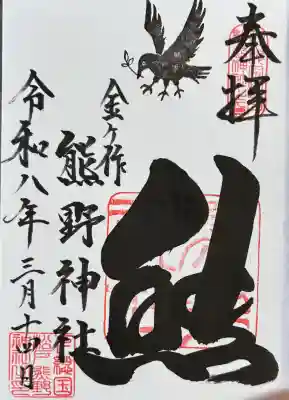 奉拝
熊
金ヶ作
熊野神社
令和八年三月十四日